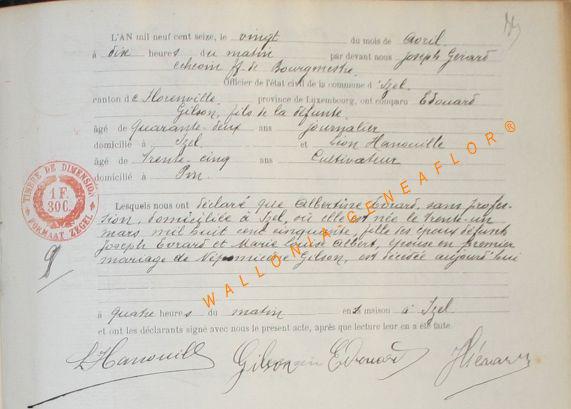 L'AN mil neuf cent seize, le vingt du mois de Avril
à dix heures du matin par devant nous Joseph Gérard
échevin ff de Bourgmestre
Officier de l'état civil de la commune d'Izel
canton de Florenville province de Luxembourg, ont comparu Edouard
Gilson, fils de la défunte
âgé de quarante-deux ans journalier
domicilié à Izel et Léon Hanouille
âgé de trente cinq ans Cultivateur
domicilié à Pin
TIMBRE DE DIMENSION
1F
30C.
FORMAAT ZEGEL
Lesquels nous ont déclaré que Albertine Evrard, sans profes-
sion, domiciliée à Izel, où elle est née le trente-un
mars mil huit cent cinquante, fille des époux défunts
Joseph Evrard et Marie Louise Albert, épouse en premier
mariage de Népomicène Gilson, est décédée aujourd'hui
à quatre heures du matin en sa maison à Izel
et ont les déclarants signé avec nous le présent acte, après que lecture leur en a été faite.
L Hanouille Gilson Edouard J Gérard
WALLONIA GENEAFLOR ®